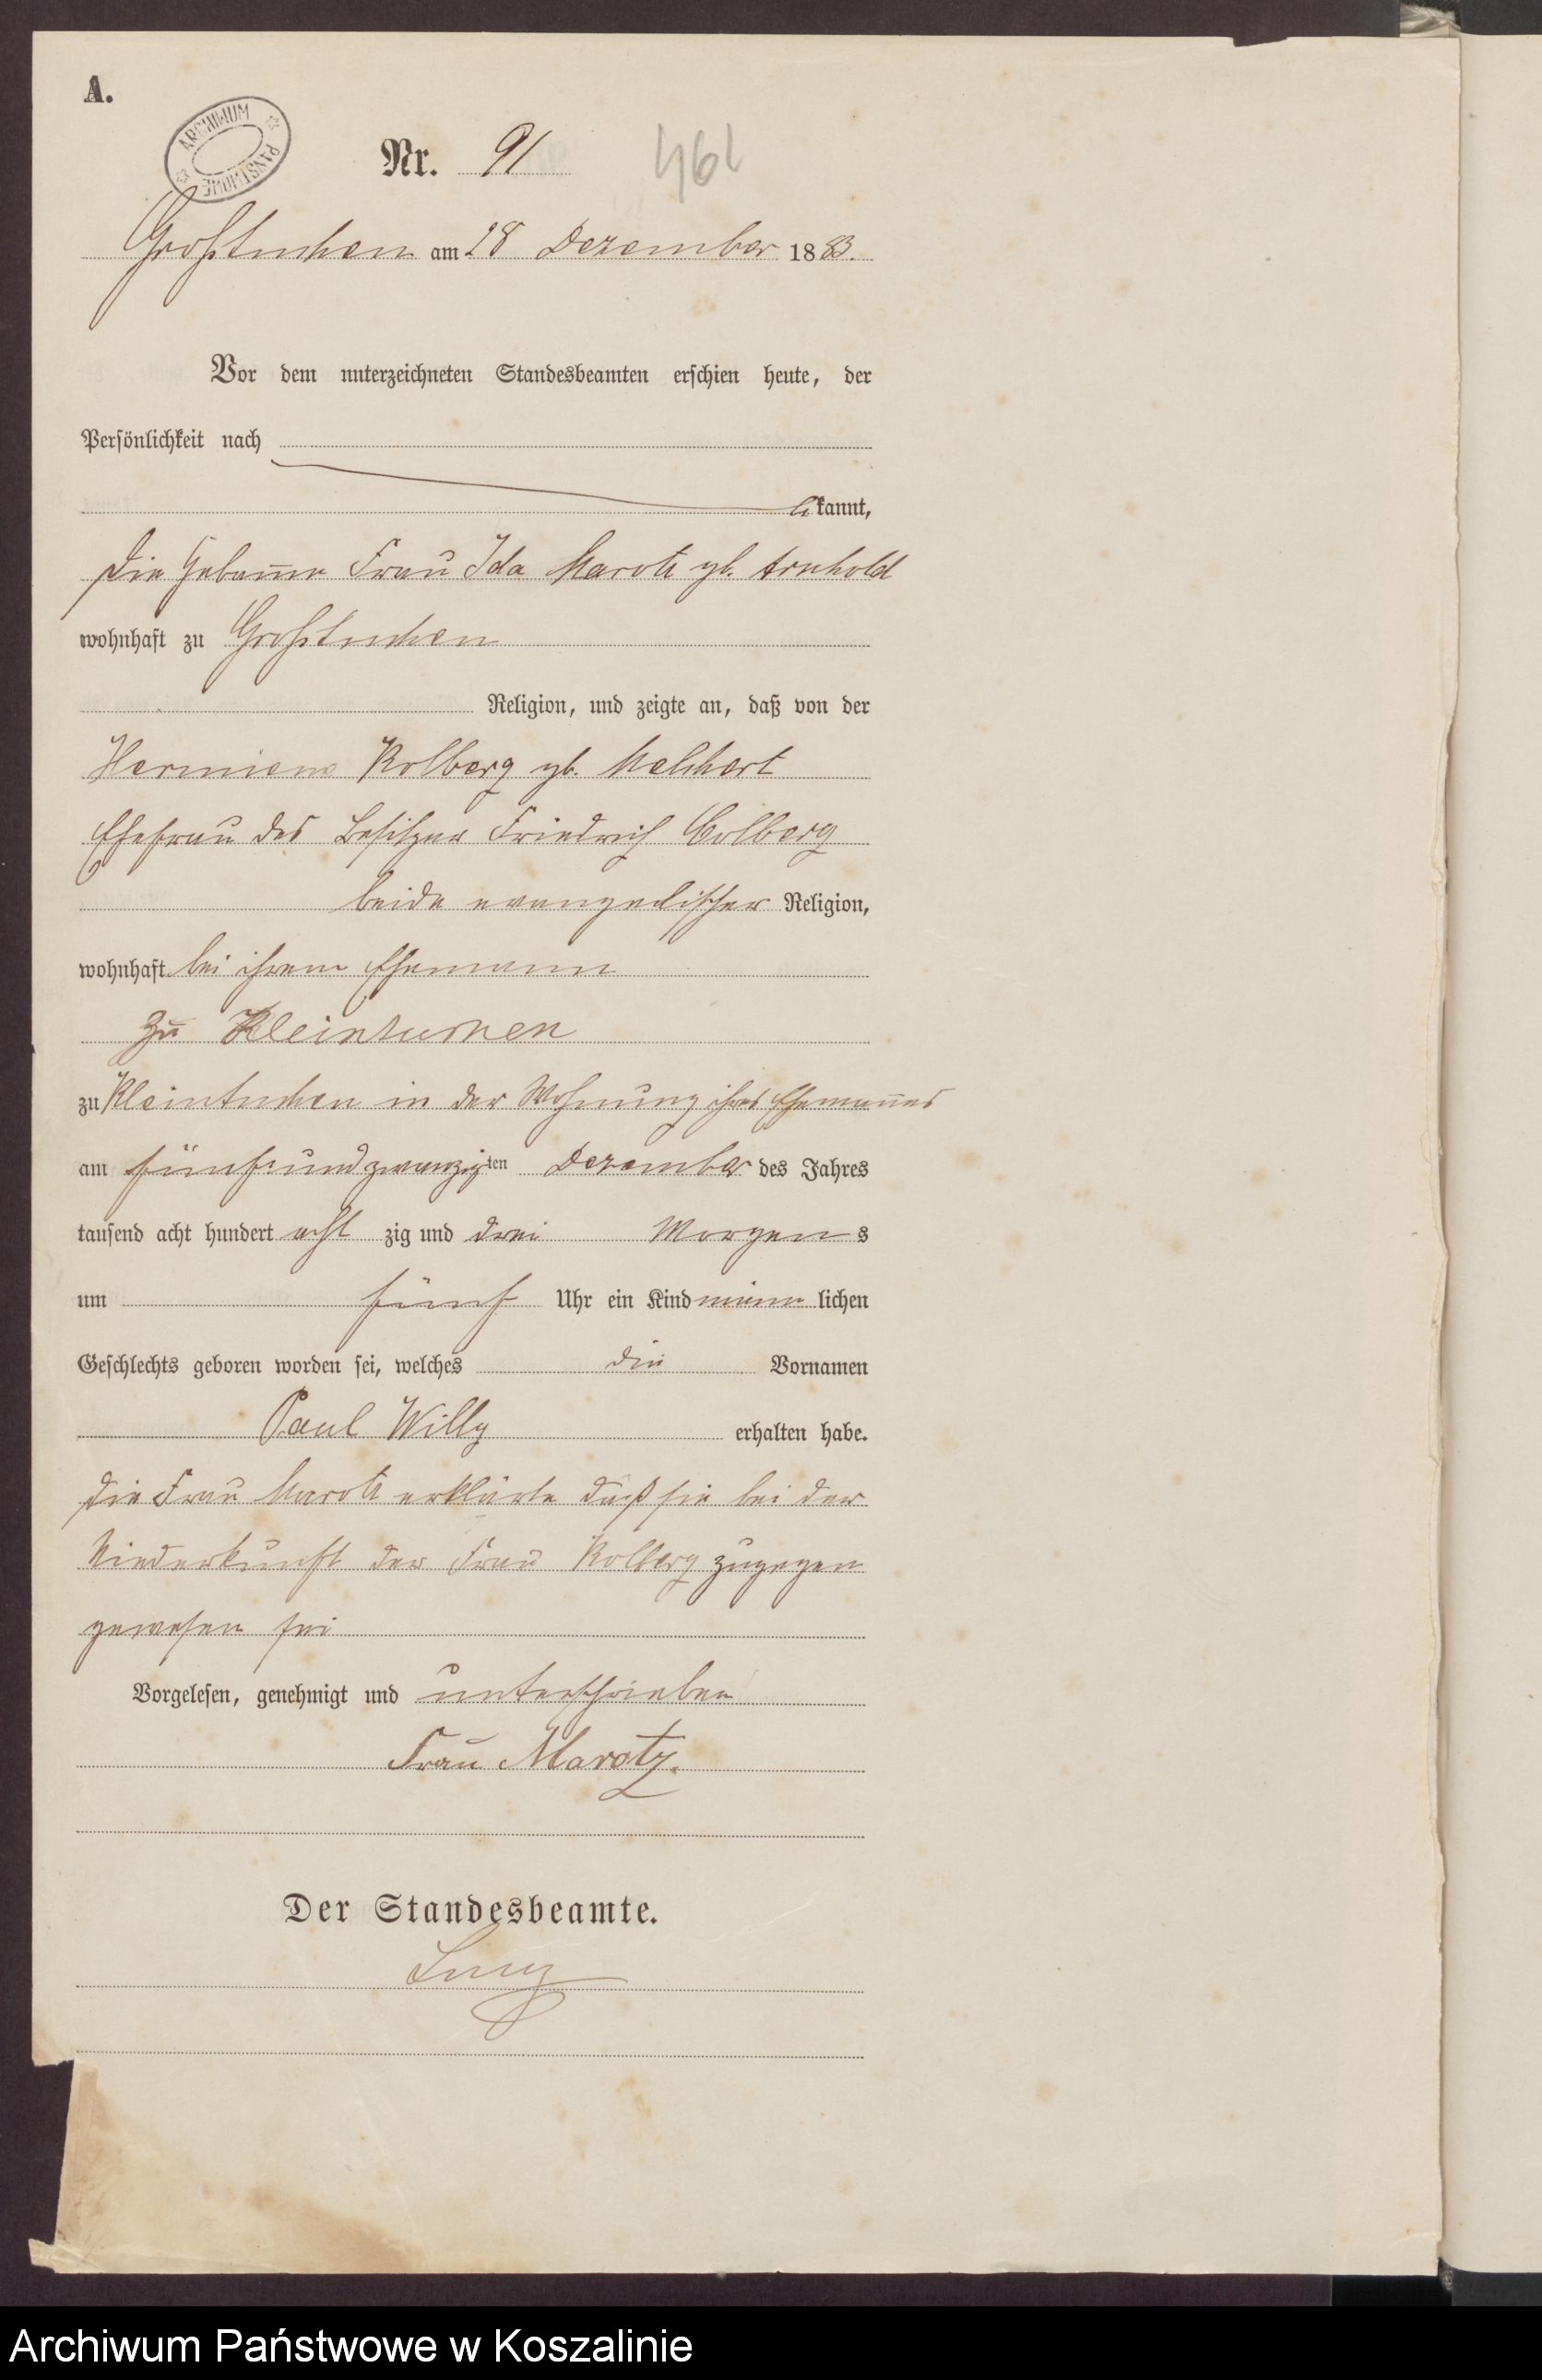 A.
ARCHIWUM PAŃSTWOWE
Nr. 91
461
Großtuchen am 28 Dezember 1883.
Vor dem unterzeichneten Standesbeamten erschien heute, der
Persönlichkeit nach
bekannt,
Die Hebamme Frau Ida Marotz gb. Arnhold
wohnhaft zu Großtuchen
Religion, und zeigte an, daß von der
Hermiene Kolberg gb. Melchert
Ehefrau des Besitzer Friedrich Colberg
beide evangelischer Religion,
wohnhaft bei ihrem Ehemann
zu Kleintuchen
zu Kleintuchen in der Wohnung ihres Ehemannes
am fünfundzwanzigten Dezember des Jahres
tausend acht hundert acht zig und drei Morgens
um fünf Uhr ein Kind männlichen
Geschlechts geboren worden sei, welches die Vornamen
Paul Willy erhalten habe.
Die Frau Marotz erklärte daß sie bei der
Niederkunft der Frau Kolberg zugegen
gewesen sei
Vorgelesen, genehmigt und unterschrieben
Frau Marotz.
Der Standesbeamte.
Archiwum Państwowe w Koszalinie